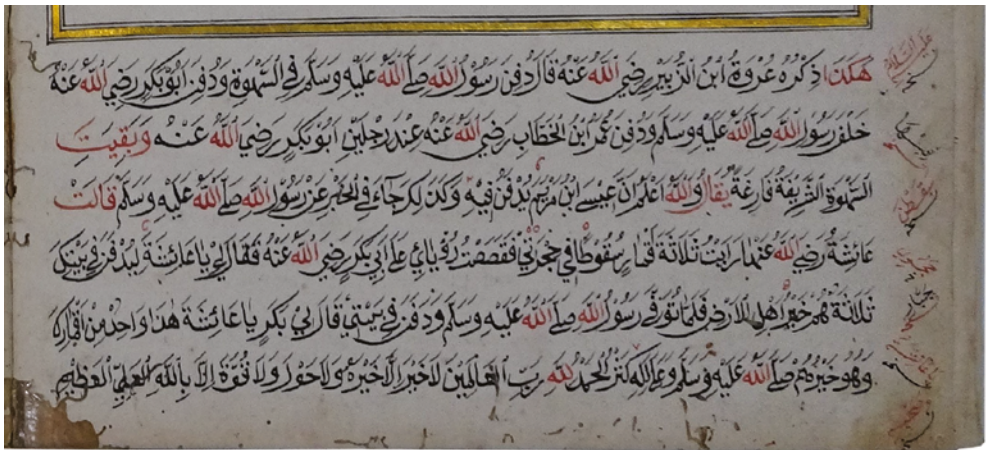 هَكَذَا ذِكْرُهُ عُرْوَةُ ابْنُ الزُّبَيْرِ رَضِيَ اللهُ عَنْهُ قَالَ دُفِنَ رَسُوْلُ اللهِ صَلَّى اللهُ عَلَيْهِ وَسَلَّمَ فِي السَّهْوَةِ وَدُفِنَ اَبُوْبَكْرٍ رَضِيَ اللهُ عَنْهُ
خَلْفَ رَسُوْلِ اللهِ صَلَّى اللهُ عَلَيْهِ وَسَلَّمَ وَدُفِنَ عُمَرُ ابْنُ الْخَطَّابِ رَضِيَ اللهُ عَنْهُ عِنْدَ رِجْلَيْنِ اَبُوْ بَكْرٍ رَضِيَ اللهُ عَنْهُ وَبَقِيَتِ
السَّهْوَةُ الشَّرِيْفَةُ فَارِغَةً يُقَالُ وَاللهُ اَعْلَمُ اَنَّ عِيْسَى ابْنُ مَرْيَمَ يُدْفَنُ فِيْهِ وَكَذَلِكَ جَآءَ فِي الْخَبَرِ عَنْ رَسُوْلِ اللهِ صَلَّى اللهُ عَلَيْهِ وَسَلَّمَ قَالَتْ
عَائِشَةُ رَضِيَ اللهُ عَنْهَا رَاَيْتُ ثَلَاثَةَ اَقْمَارٍ سُقُوْطًا فِي حُجْرَتِيْ فَقَصَصْتُ رُؤْيَائِي عَلَى اَبِي بَكْرٍ رَضِيَ اللهُ عَنْهُ فَقَالَ لِيْ يَا عَائِشَةُ لَيُدْفَنُ فِي بَيْتِكِ
ثَلَاثَةٌ هُمْ خَيْرُ اَهْلِ الْاَرْضِ فَلَمَّا تُوُفِّيَ رَسُوْلُ اللهِ صَلَّى اللهُ عَلَيْهِ وَسَلَّمَ وَدُفِنَ فِي بَيْتِيْ قَالَ لِيْ بَكْرٍ يَا عَائِشَةُ هَذَا وَاحِدٌ مِنْ اَقْمَارِكِ
وَهُوَ خَيْرُهُمْ صَلَّى اللهُ عَلَيْهِ وَسَلَّمَ وَعَلَى اٰلِهِ الْحَمْدُ لِلّٰهِ رَبِّ الْعَالَمِيْنَ لَاخَيْرَ اِلَّا خَيْرُهُ وَلَاحَوْلَ وَلَا قُوَّةَ اِلَّا بِاللهِ الْعَلِيِّ الْعَظِيْمِ